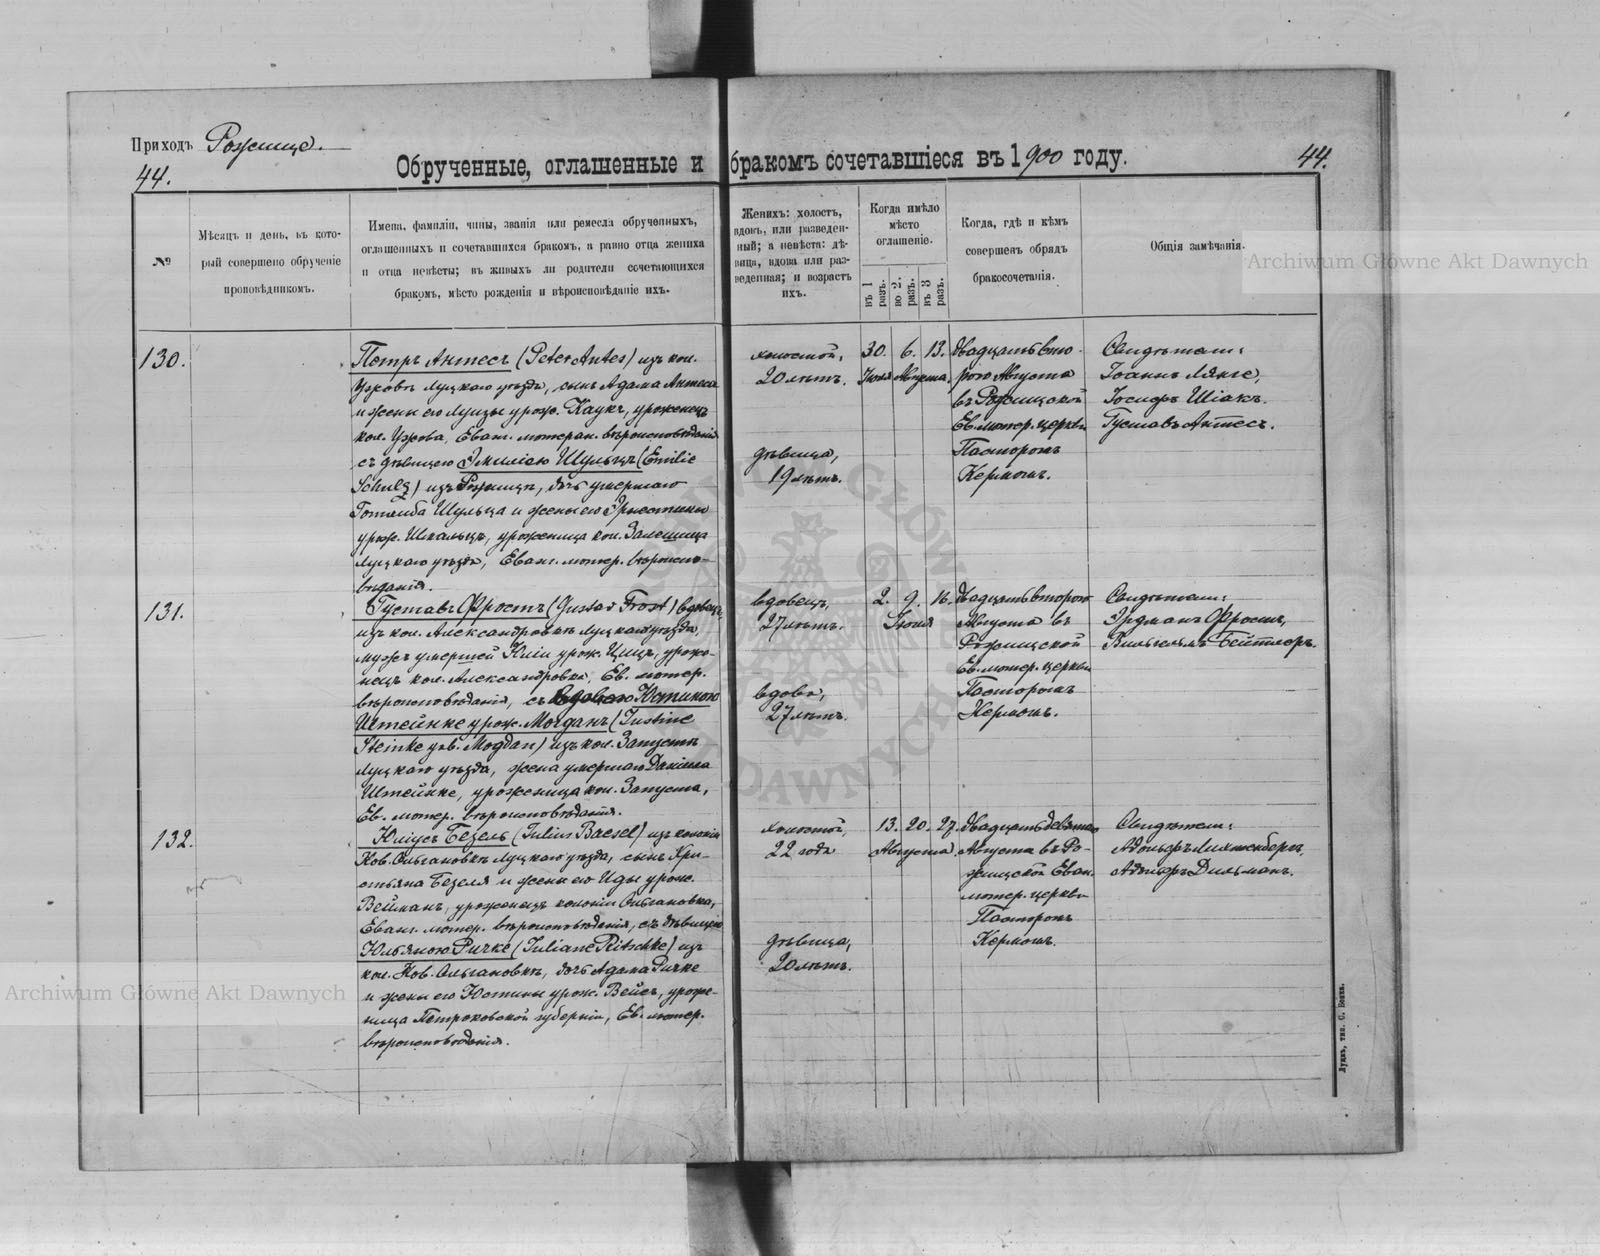 Приходъ Рожище.
44.
Обрученные, оглашенные и бракомъ сочетавшіеся въ 1900 году.
44.
№
Мѣсяцъ и день, въ кото-
рый совершено обрученіе
проповѣдникомъ.
Имена, фамиліи, чины, званія или ремесла обрученныхъ,
оглашенныхъ и сочетавшихся бракомъ, а равно отца жениха
и отца невѣсты; въ живыхъ ли родители сочетающихся
бракомъ, мѣсто рожденія и вѣроисповѣданіе ихъ.
Женихъ: холостъ,
вдовъ, или разведен-
ный; а невѣста: дѣ-
вица, вдова или раз-
веденная; и возрастъ
ихъ.
Когда имѣло
мѣсто
оглашеніе.
въ 1
разъ.
во 2.
разъ.
въ 3
разъ.
Когда, гдѣ и кѣмъ
совершенъ обрядъ
бракосочетанія.
Общія замѣчанія.
Archiwum Główne Akt Dawnych
130.
Петръ Антесъ (Peter Antes) изъ кол.
Ужовъ Луцкаго уѣзда, сынъ Адама Антеса
и жены его Луизы урож. Каукъ, уроженецъ
кол. Ужова, Еванг. лютеран. вѣроисповѣданія
съ дѣвицею Эмиліею Шульцъ (Emilie
Schulz) изъ Рожищъ, дочь умершаго
Готлиба Шульца и жены его Эрнестины
урож. Шкальцъ, уроженица кол.
Луцкаго уѣзда, Еванг. лютер. вѣроиспо-
вѣданія.
холостой,
20 лѣтъ.
дѣвица,
19 лѣтъ.
30. 6. 13.
Іюля Августа
Двадцать вто-
рого Августа
въ Рожищской
Ев. лютер. церкви
Пасторомъ
Кермомъ.
Свидѣтели:
Іоаннъ Лянге,
Іосифъ Шіакъ.
Густавъ Антесъ.
131.
Густавъ Фростъ (Gustav Frost) вдовецъ,
изъ кол. Александровкъ Луцкаго уѣзда,
мужъ умершей Юліи урож. Цицъ, уроже-
нецъ кол. Александровка, Ев. лютер.
вѣроисповѣданія, съ вдовою Юстиною
Штейнке урож. Могданъ (Justine
Steinke geb. Mogdan) изъ кол. Запустъ
Луцкаго уѣзда, жена умершаго Даніила
Штейнке, уроженица кол. Запуста,
Ев. лютер. вѣроисповѣданія.
вдовецъ,
27 лѣтъ.
вдова,
27 лѣтъ.
2. 9. 16.
Іюля
Двадцать второго
Августа въ
Рожищской
Ев. лютер. церкви
Пасторомъ
Кермомъ.
Свидѣтели:
Эрдманъ Фростъ,
Вильгельмъ Бейтлеръ.
132.
Юліусъ Безель (Julius Baesel) изъ колоніи
Нов. Ольгановкъ Луцкаго уѣзда, сынъ Хри-
стьяна Безеля и жены его Иды урож.
Вейманъ, уроженецъ колоніи Ольгановка,
Еванг. лютер. вѣроисповѣданія, съ дѣвицею
Юльяною Ричке (Juliane Ritschke) изъ
кол. Нов. Ольгановкъ, дочь Адама Ричке
и жены его Юстины урож. Вейсъ, уроже-
ница Петроковской губерніи, Ев. лютер.
вѣроисповѣданія.
холостой,
22 года
дѣвица,
20 лѣтъ.
13. 20. 27.
Августа
Двадцать девятаго
Августа въ Ро-
жищской Еван.
лютер. церкви
Пасторомъ
Кермомъ.
Свидѣтели:
Адольфъ Лихтенбергъ,
Адольфъ Дильманъ.
Archiwum Główne Akt Dawnych
Луцкъ, тип. С. Бокка.